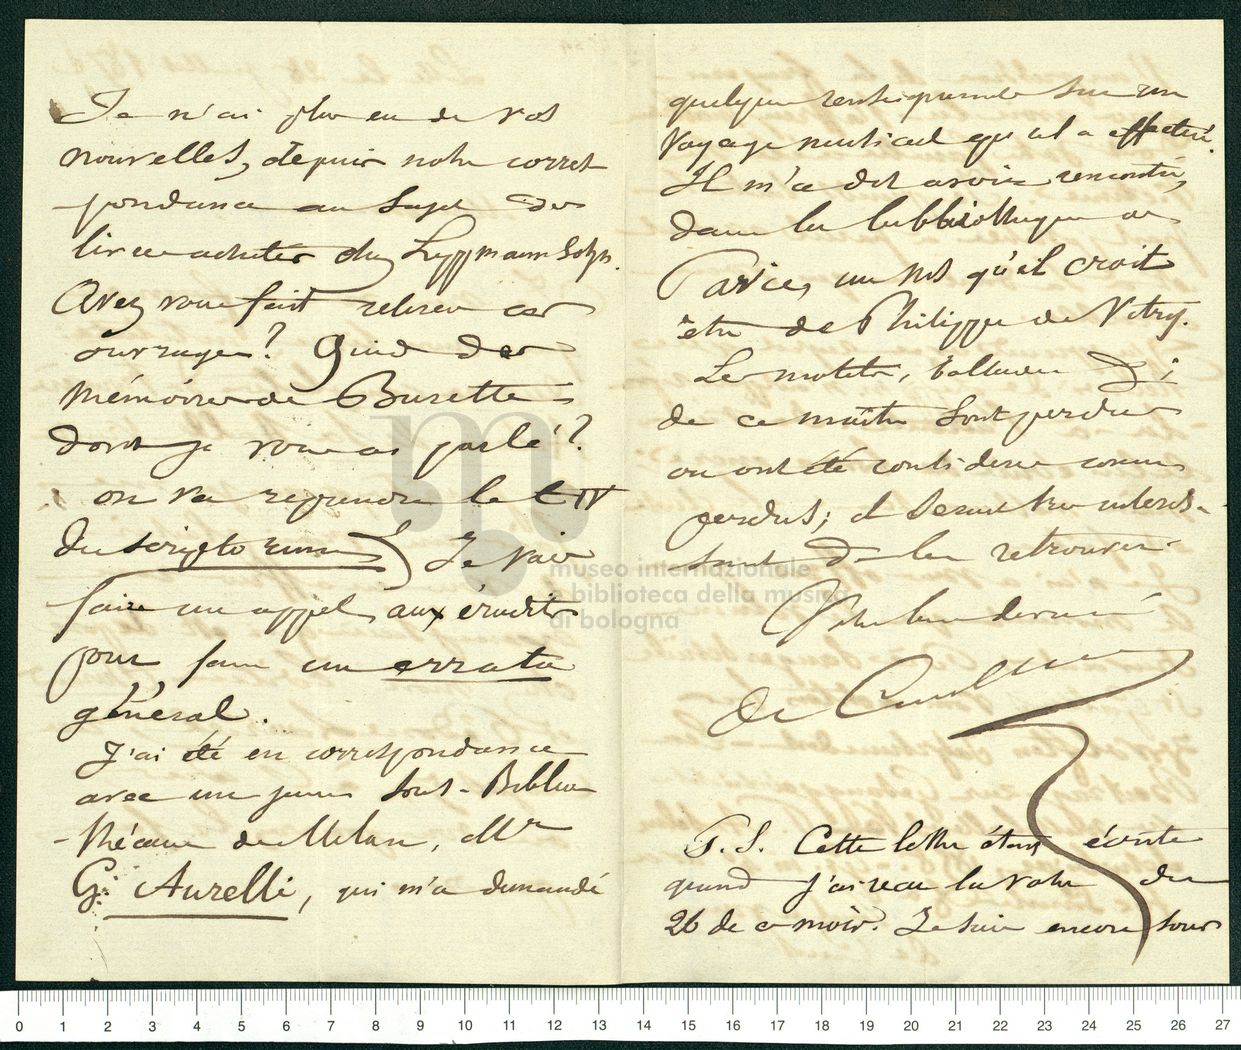 Je n'ai plus eu de vos
nouvelles, depuis notre corres
-pondance au sujet des
livres achetés chez Lippmannsohn.
Avez vous fait relever ces
ouvrages? Quid des
mémoires de Burette
dont je vous ai parlé?
on va reprendre le t IV
du scriptorum. Je vais
faire un appel aux érudits
pour faire un errata
général.
J'ai été en correspondance
avec un jeune sous-Biblio
-thécaire de Milan, Mr
G. Aurelli, qui m'a demandé
quelques renseignements sur un
voyage musical qu'il a effectué.
Il m'a dit avoir rencontré,
dans la bibliothèque de
un Ms qu'il croit
être de Philippe de Vitry.
Les motets, ballades &
de ce maître sont perdus
ou ont été considérés comme
perdus; il serait très intéres-
sant de les retrouver.
Votre bien dévoué
de Coussemaker
P. S. Cette lettre étant écrite
quand j'ai reçu la votre du
26 de ce mois. Je suis encore sous
museo internazionale
e biblioteca della musica
di bologna
0 1 2 3 4 5 6 7 8 9 10 11 12 13 14 15 16 17 18 19 20 21 22 23 24 25 26 27